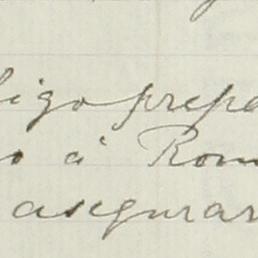 ligo prepa
o á Rom
asegurar